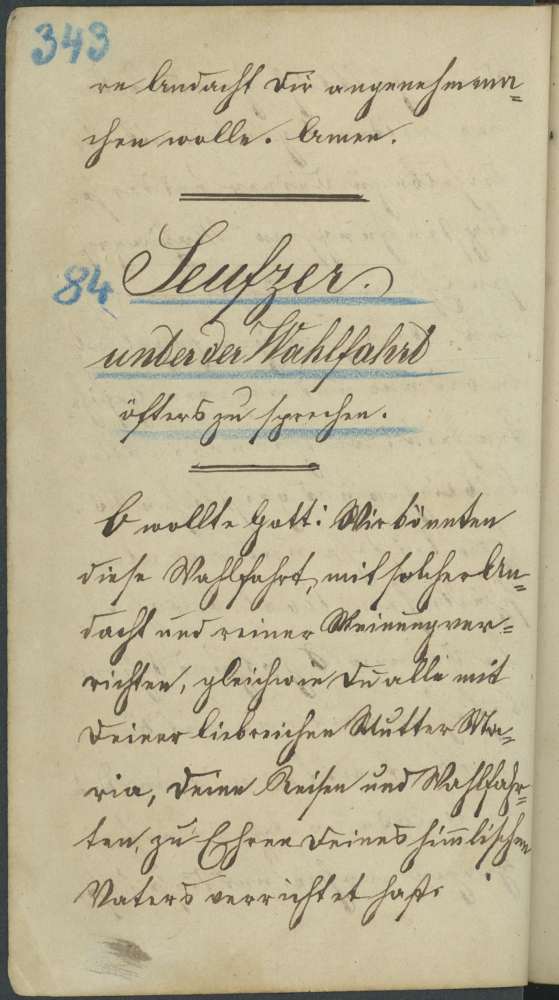 343
re Andacht dir angenehm ma=
chen wolle. Amen.
84 Seufzer.
unter der Wahlfahrt
öfters zu sprechen.
O wollte Gott! Wir könnten
diese Wahlfahrt, mit solcher An=
dacht und reiner Meinung ver=
richten, gleichwie du alle mit
deiner liebreichen Mutter Ma=
ria, deine Reisen und Wahlfahr=
ten, zu Ehren deines him̅lischen
Vaters verrichtet hast.